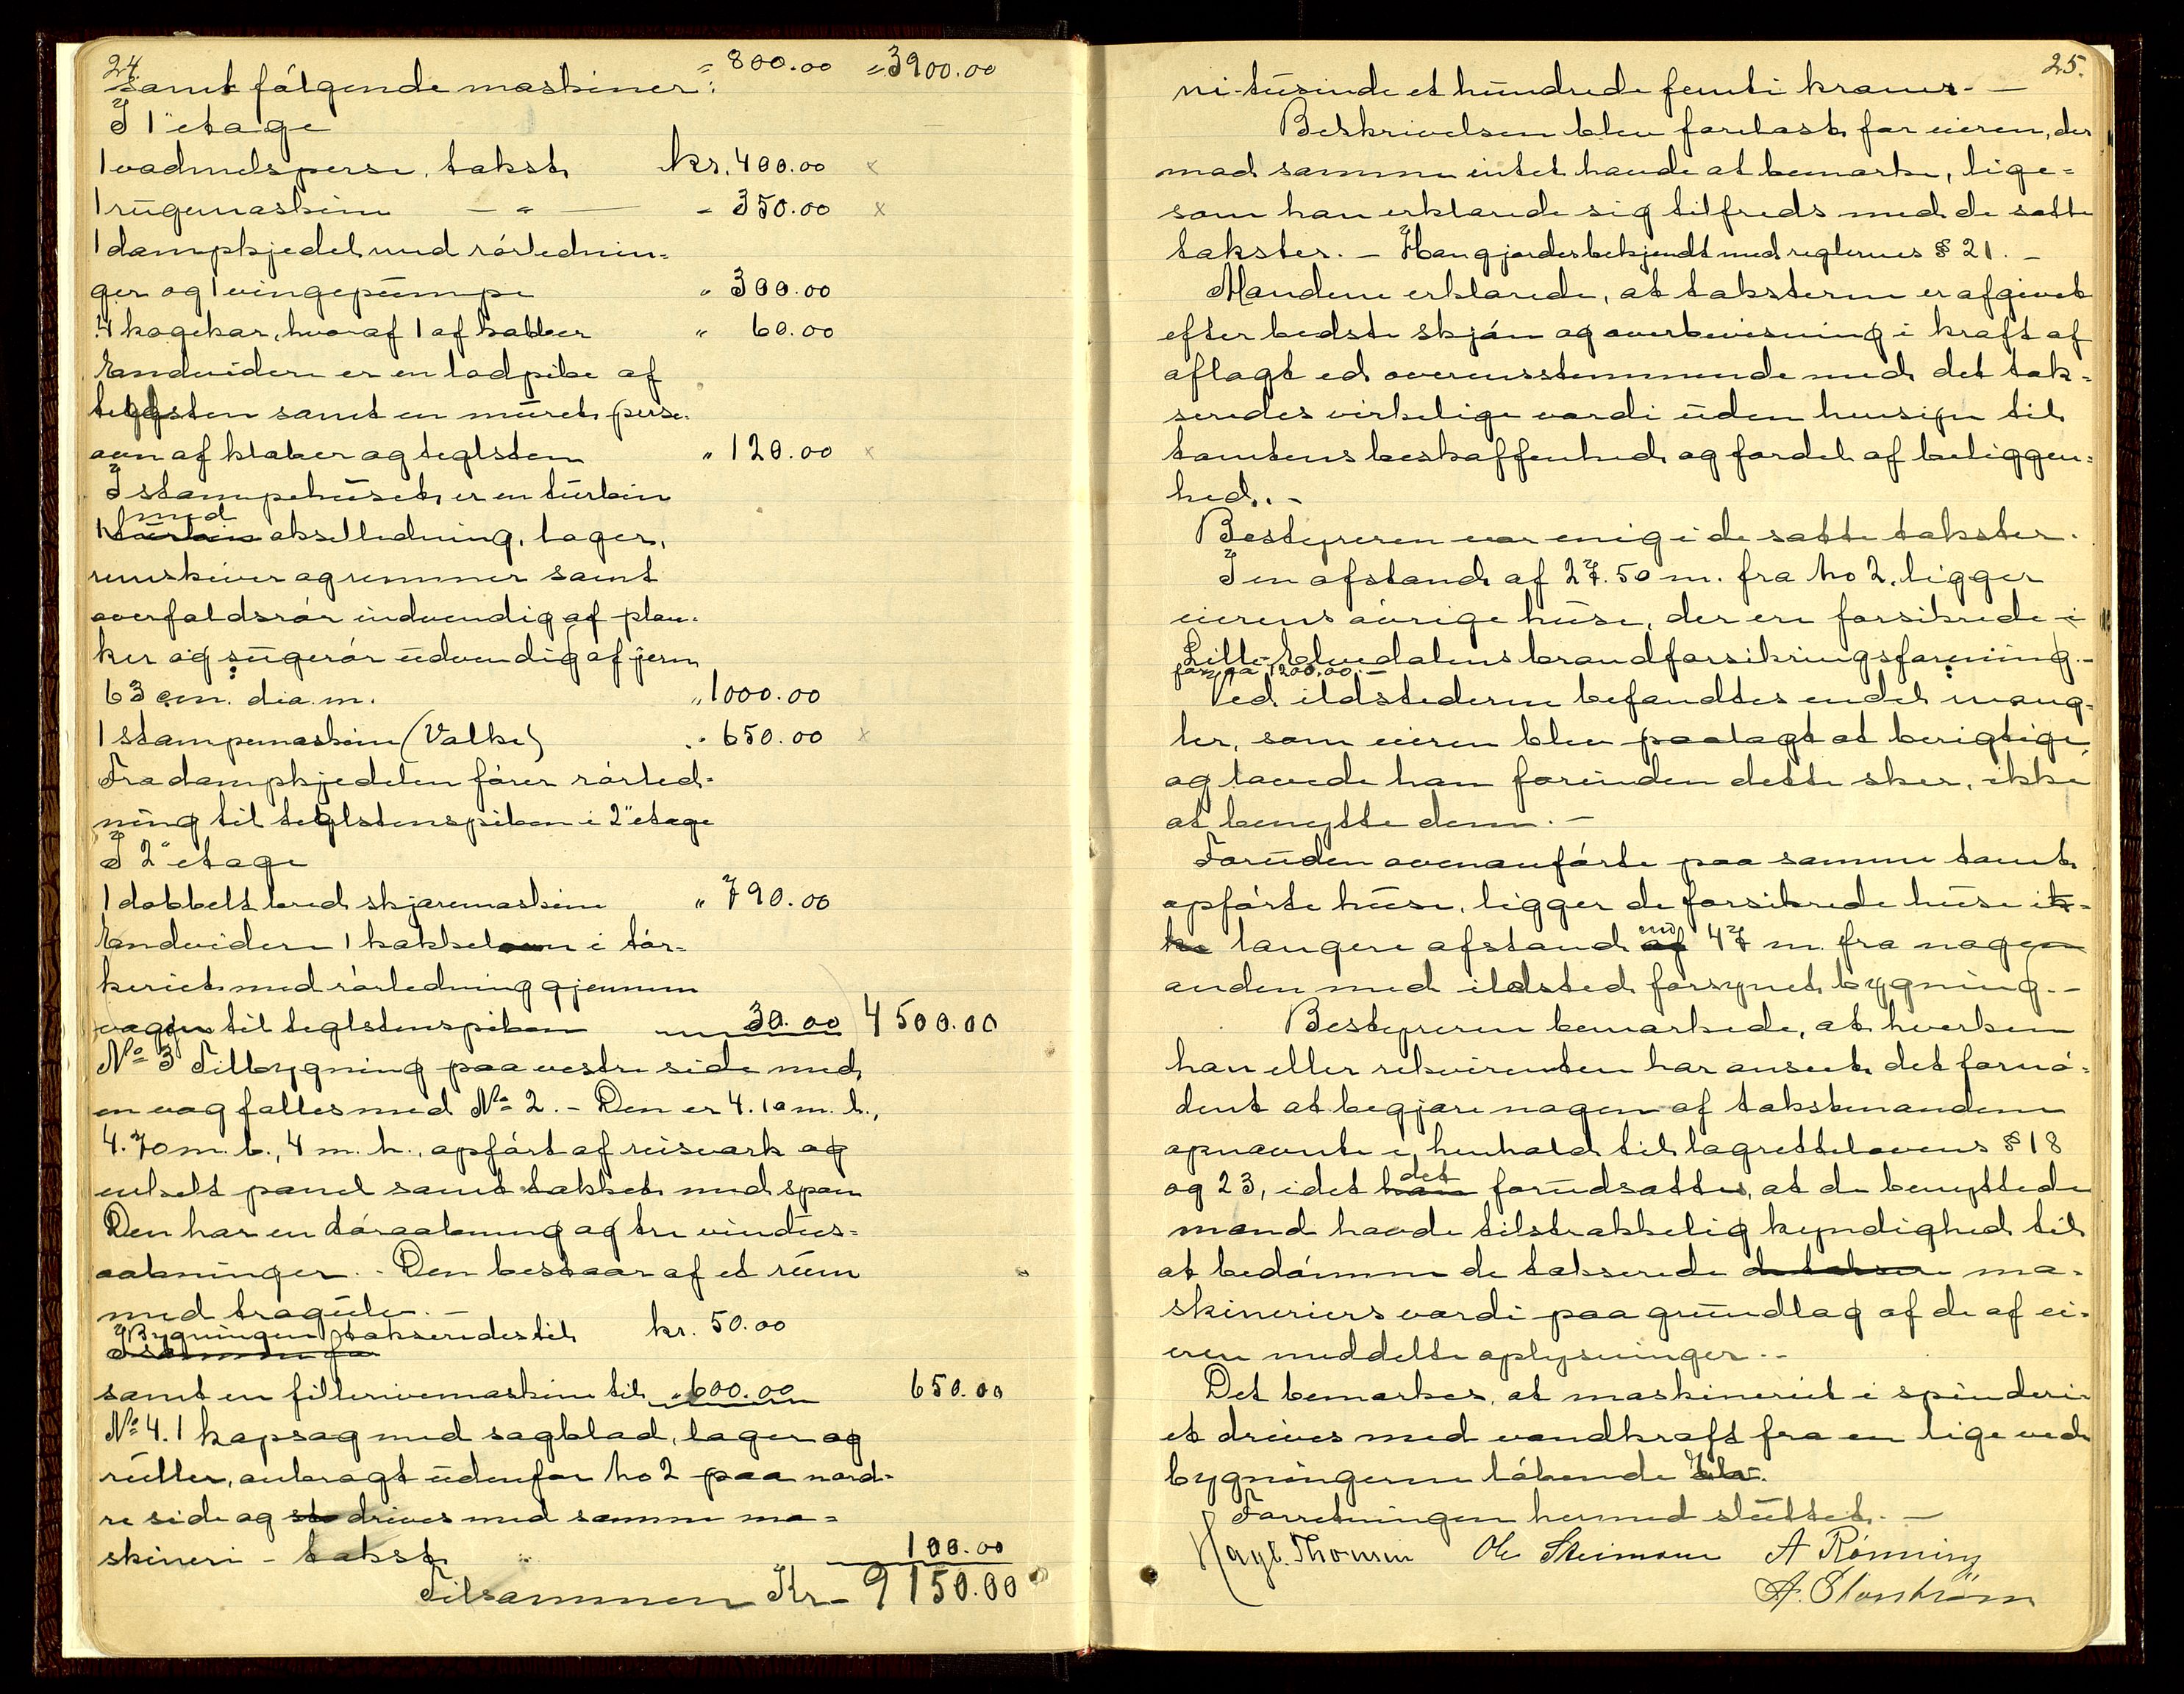 24.
samt følgende maskiner: = 800.00 = 3900.00
I 1" etage
1 vadmelsperse, takst kr. 400.00 x
1 rugemaskine — " — - 350.00 x
1 dampkjedel med rørlednin=
ger og 1 vingepumpe " 300.00
4 kogekar, hvoraf 1 af kobber " 60.00
Endvidere er en lodpibe af
teglsten samt en muret perse=
ovn af kleber og teglsten " 120.00 x
I stampehuset er en turbin
med
1 turbin akselledning, lager,
remskiver og remmer samt
overfaldsrør indvendig af plan=
ker og sugerør udvendig af jern
63 cm. dia.m. " 1000.00
1 stampemaskine (Valke) " 650.00 x
Fra dampkjedelen fører rørled=
ning til teglstenspiben i 2" etage
I 2" etage
1 dobbelt bred skjæremaskine " 790.00
Endvidere 1 kakkelovn i tør=
keriet med rørledning gjennem
væggen til teglstenspiben 30.00 4500.00
No 3 Tilbygning paa vestre side med
en væg fælles med No 2. - Den er 4.10 m. l.,
4.70 m. b., 4 m. h., opført af reisverk og
enkelt panel samt takket med spon
Den har en døraabning og tre vindus=
aabninger. - Den bestaar af et rum
med trægulv. -
Bygningen taksredes til kr. 50.00
samt en fillerivemaskine til " 600.00 650.00
No 4. 1 kapsag med sagblad, lager og
ruller, anbragt udenfor No 2 paa nord=
re side og sto drives med samme ma=
skineri - takst " 100.00
Tilsammen Kr. 9150.00
25.
ni-tusinde et hundrede femti kroner. —
Beskrivelsen blev forelæst for eieren, der
mod samme intet havde at bemærke, lige=
som han erklærede sig tilfreds med de satte
takster. - Han gjordes bekjendt med reglernes § 21. -
Mændene erklærede, at taksterne er afgivet
efter bedste skjøn og overbevisning i kraft af
aflagt ed overensstemmende med det tak=
seredes virkelige værdi uden hensyn til
tomtens beskaffenhed og fordel af beliggen=
hed. -
Bestyreren var enig i de satte takster.
I en afstand af 27.50 m. fra No 2, ligger
eierens øvrige huse, der ere forsikrede i
Lille-Elvedalens brandforsikringsforening. -
for ca 1200.00. -
Ved ildstederne befandtes endel mang=
ler, som eieren blev paalagt at berigtige,
og lovede han forinden dette sker, ikke
at benytte dem. -
Foruden ovenanførte paa samme tomt
opførte huse, ligger de forsikrede huse ik=
end
ke længere afstand af 47 m. fra nogen
anden med ildsted forsynet bygning. -
Bestyreren bemærkede, at hverken
han eller rekvirenten har anseet det fornø=
dent at begjære nogen af takstmændene
opnævnte i henhold til lagrettelovens § 18
det
og 23, idet han forudsattes, at de benyttede
mænd havde tilstrækkelig kyndighed til
at bedømme de takserede de takser ma=
skineriers værdi paa grundlag af de af ei=
eren meddelte oplysninger. -
Det bemærkes, at maskineriet i spinderi=
et drives med vandkraft fra en lige ved
bygningerne løbende elv.
Forretningen hermed sluttet. —
Hagb. Thomsen Ole Steimoen A Rønning
A. Storstrøm